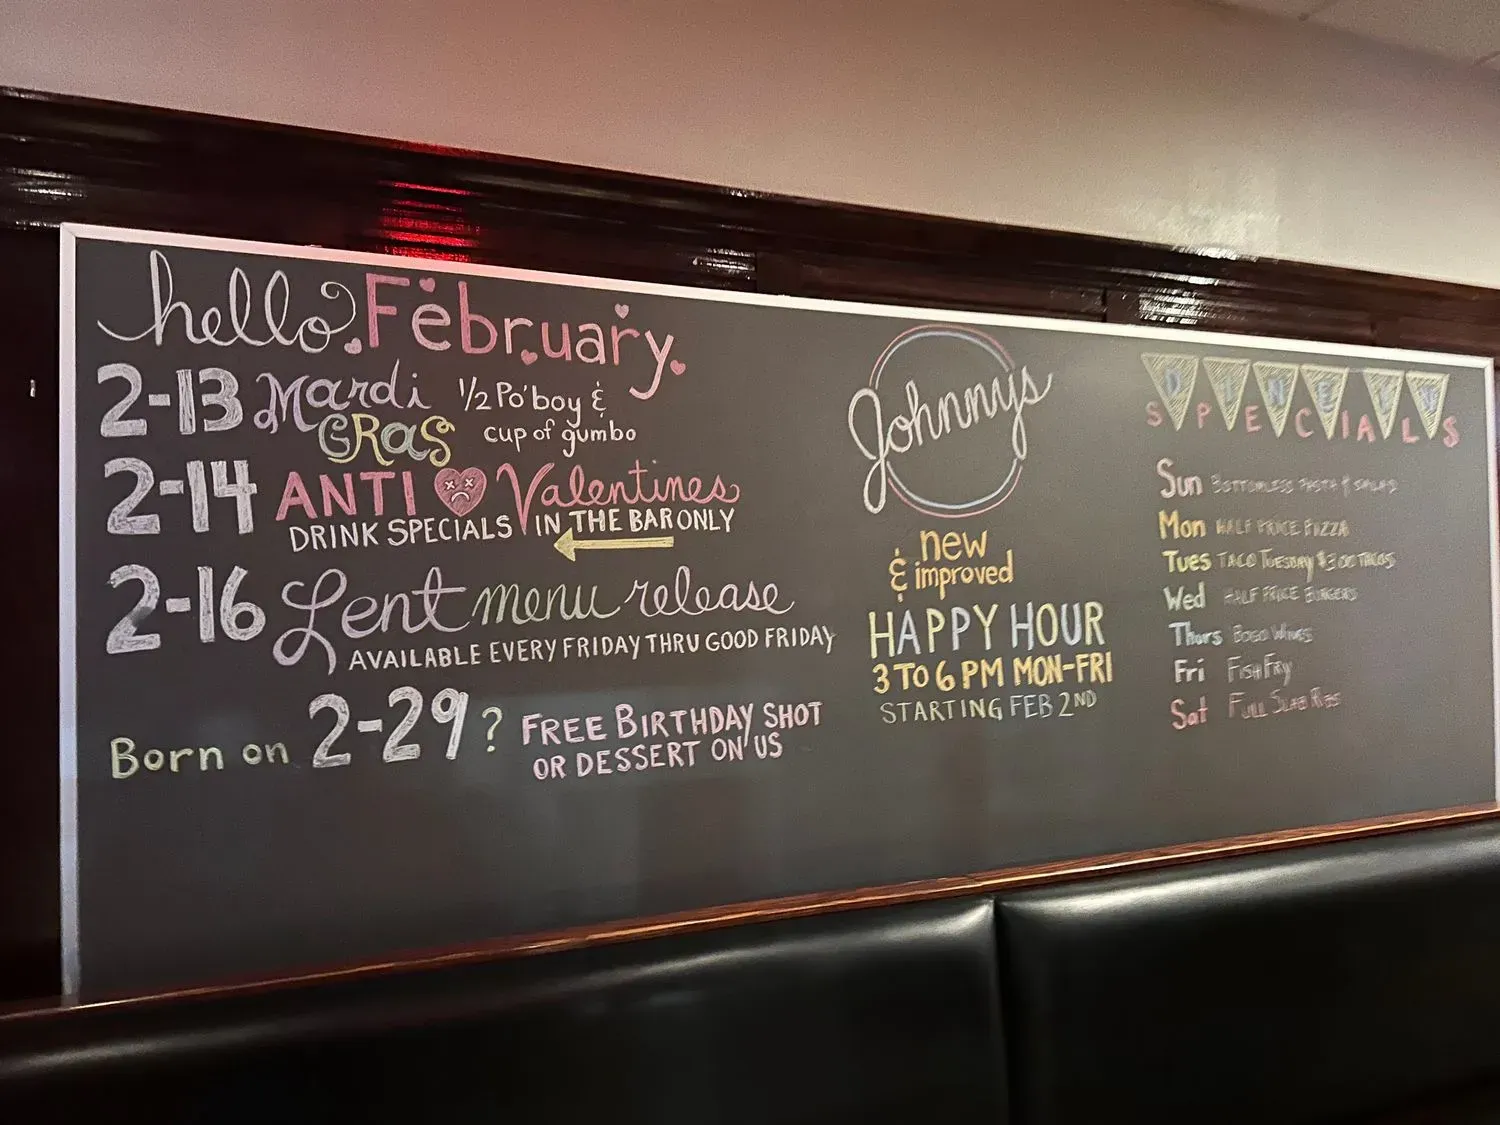 hello February
2-13 Mardi GRAS 1/2 Po'boy & cup of gumbo
2-14 ANTI Valentines
DRINK SPECIALS IN THE BAR ONLY
2-16 Lent menu release
AVAILABLE EVERY FRIDAY THRU GOOD FRIDAY
Born on 2-29? FREE BIRTHDAY SHOT
OR DESSERT ON US
Johnnys
new
& improved
HAPPY HOUR
3 TO 6 PM MON-FRI
STARTING FEB 2ND
DINE IN
SPECIALS
Sun BOTTOMLESS PASTA & SALAD
Mon HALF PRICE PIZZA
Tues TACO TUESDAY $3.00 TACOS
Wed HALF PRICE BURGERS
Thurs BOGO WINGS
Fri FISH FRY
Sat FULL SLAB RIBS